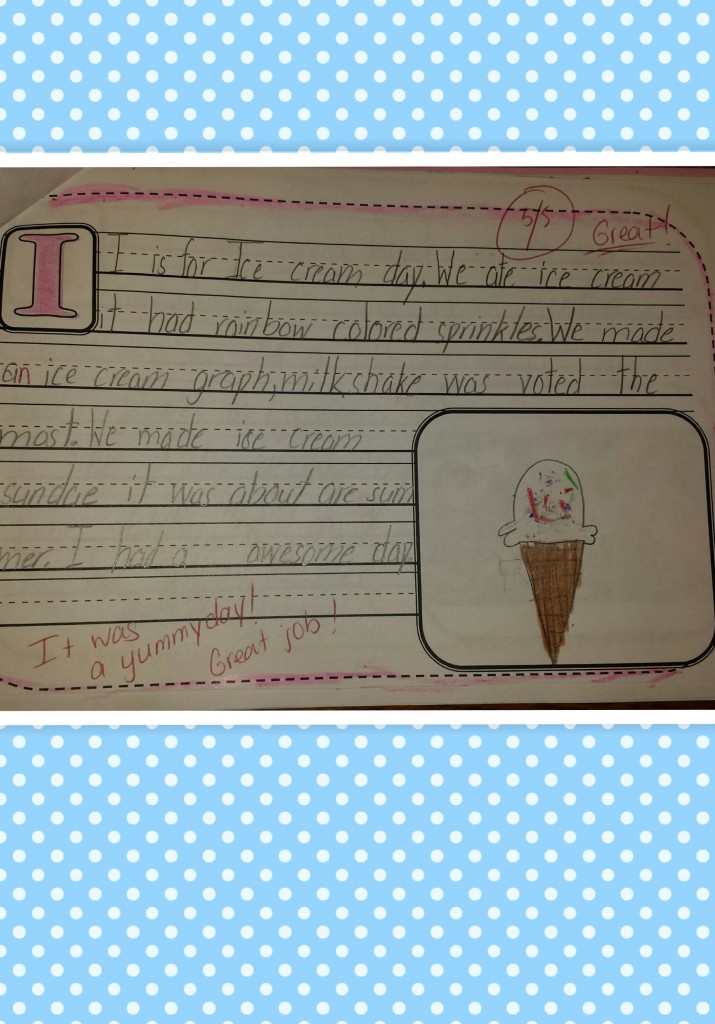 5/5 Great!
I I is for Ice cream day. We ate ice cream
it had rainbow colored sprinkles. We made
an ice cream graph, milkshake was voted the
most. We made ice cream
sundae it was about are sum
mer. I had a awesome day
It was
a yummy day!
Great job!